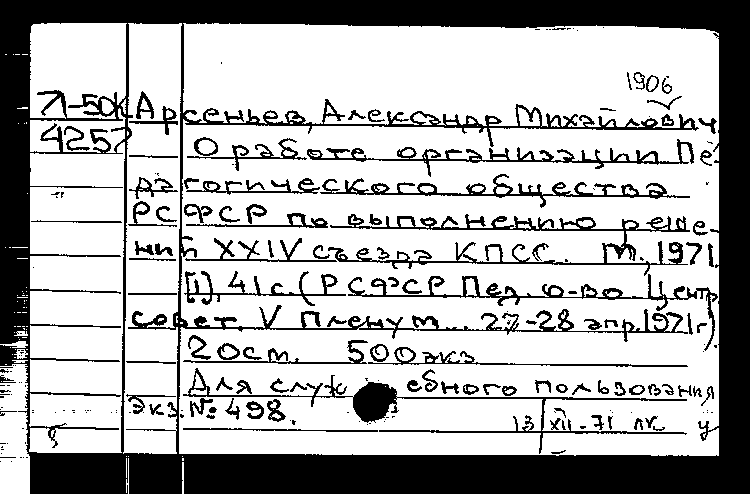 1906
71-50К Арсеньев, Александр Михайлович
4257 О работе организации Пе-
дагогического общества
РСФСР по выполнению реше-
ний XXIV съезда КПСС. М., 1971
[1], 41 с. (РСФСР. Пед. о-во Центр.
совет. V Пленум... 27-28 апр. 1971 г.)
20 см. 500 экз
Для служебного пользования
Экз. № 498.
13/XII-71 лк у